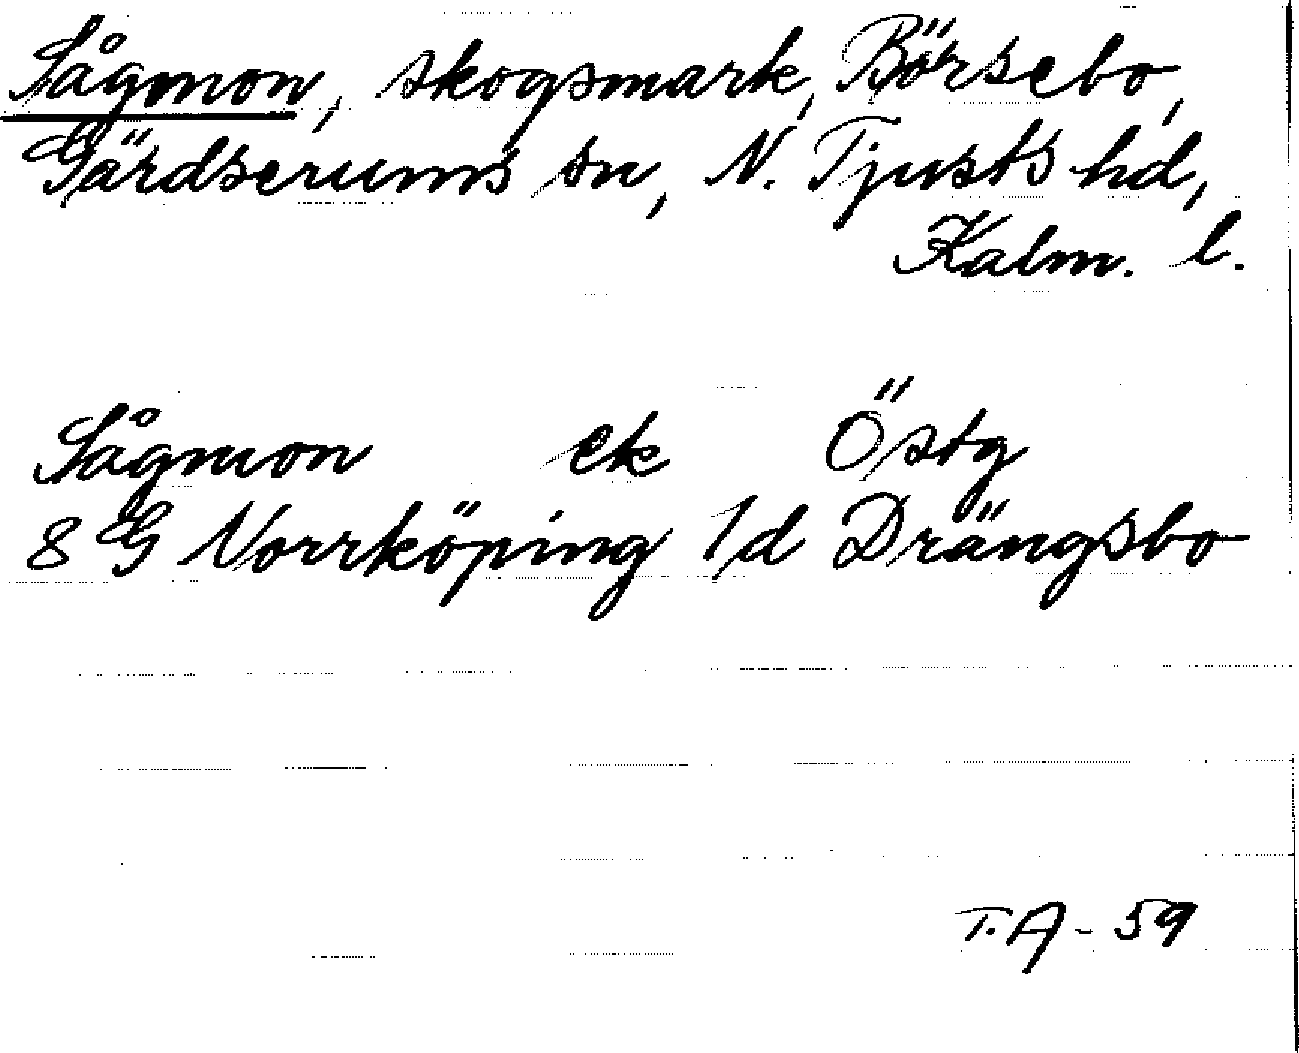 Sågmon, skogsmark, Börsebo,
Gärdserums sn, N. Tjusts hd,
Kalm. l.
Sågmon ek Östg
8 G Norrköping 1/d Drängsbo
T.A-59